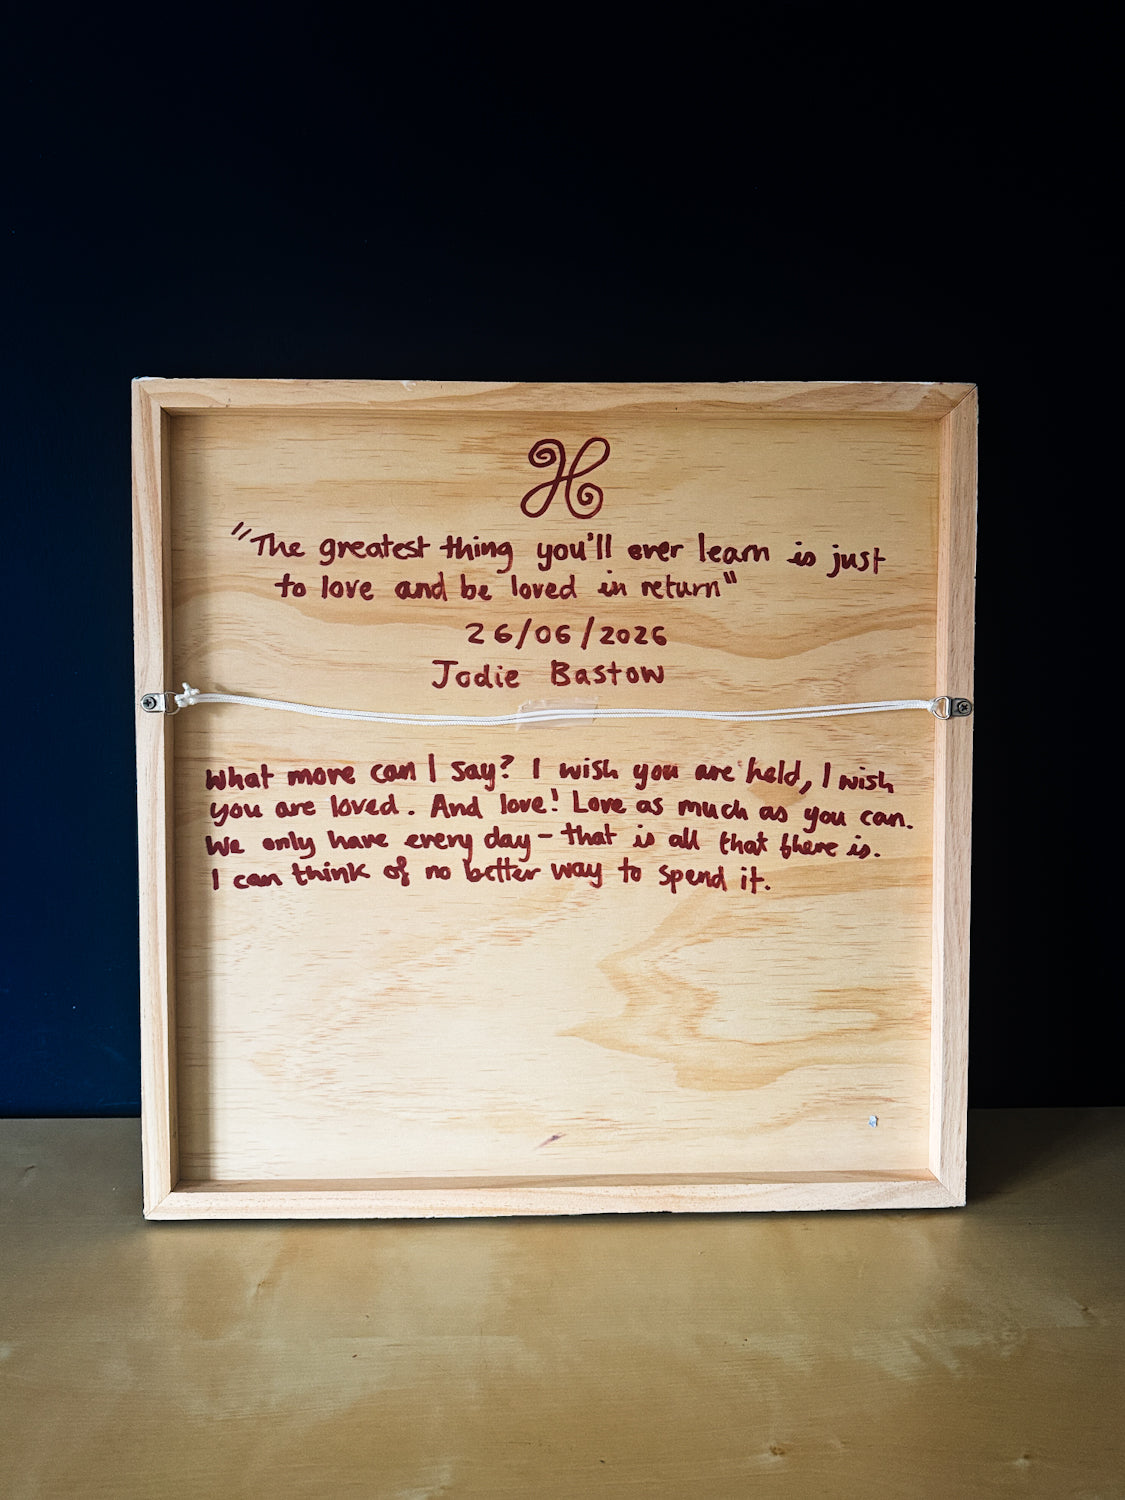 "The greatest thing you'll ever learn is just
to love and be loved in return"
26/06/2026
Jodie Bastow
What more can I say? I wish you are held, I wish
you are loved. And love! Love as much as you can.
We only have every day - that is all that there is.
I can think of no better way to spend it.